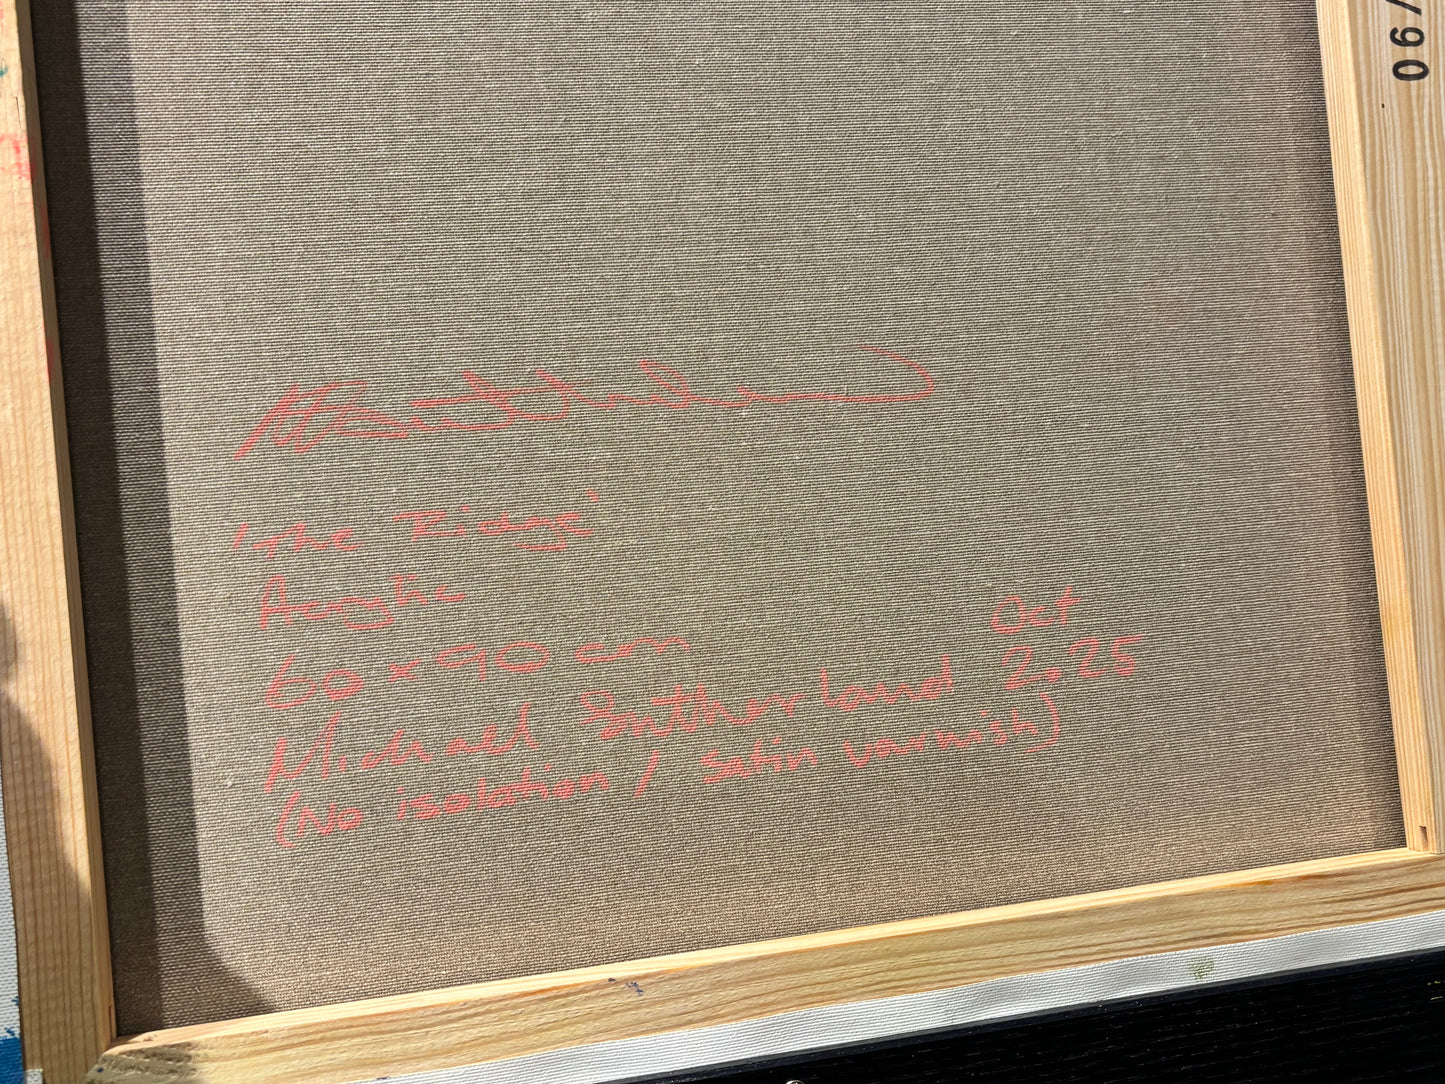 /90
MSutherland
'The Ridge'
Acrylic
60 x 90 cm
Oct
Michael Sutherland 2025
(No isolation / satin varnish)